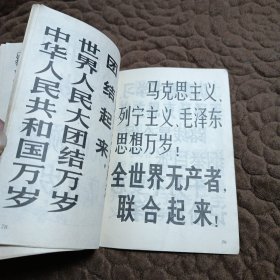 团结起来,
世界人民大团结万岁
中华人民共和国万岁
马克思主义、
列宁主义、毛泽东
思想万岁!
全世界无产者,
联合起来!